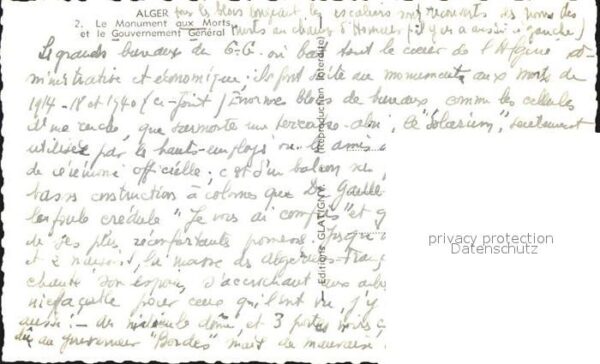 ALGER
2. Le Monument aux Morts
et le Gouvernement Général
tous les blocs longeant les escaliers sont recouverts des noms des
Morts au champ d'Honneur (il y en a aussi à gauche)
Les grands bureaux du G.G. où bat tout le cœur de l'Algérie ad-
ministrative et économique; ils font suite au monument aux morts de
1914-18 et 1940 (ci-joint) Enormes blocs de bureaux comme les cellules
d'une ruche, que surmonte une terrasse-abri, le "Solarium", seulement
utilisée par les hauts employés ou les amis
de cérémonie officielle; c'est d'un balcon
basse construction à colonnes que De Gaulle
la foule crédule "Je vous ai compris" et
de ses plus réconfortants
et la masse des Algériens-Franç
chanté son espoir, s'accrochant aux
ineffaçable pour ceux qui l'ont vu, j'y
aussi; et 3 portes
du gouverneur "Bordes" mais de mauvaise
Editions GLATIGNY
(Reproduction interdite)
privacy protection
Datenschutz